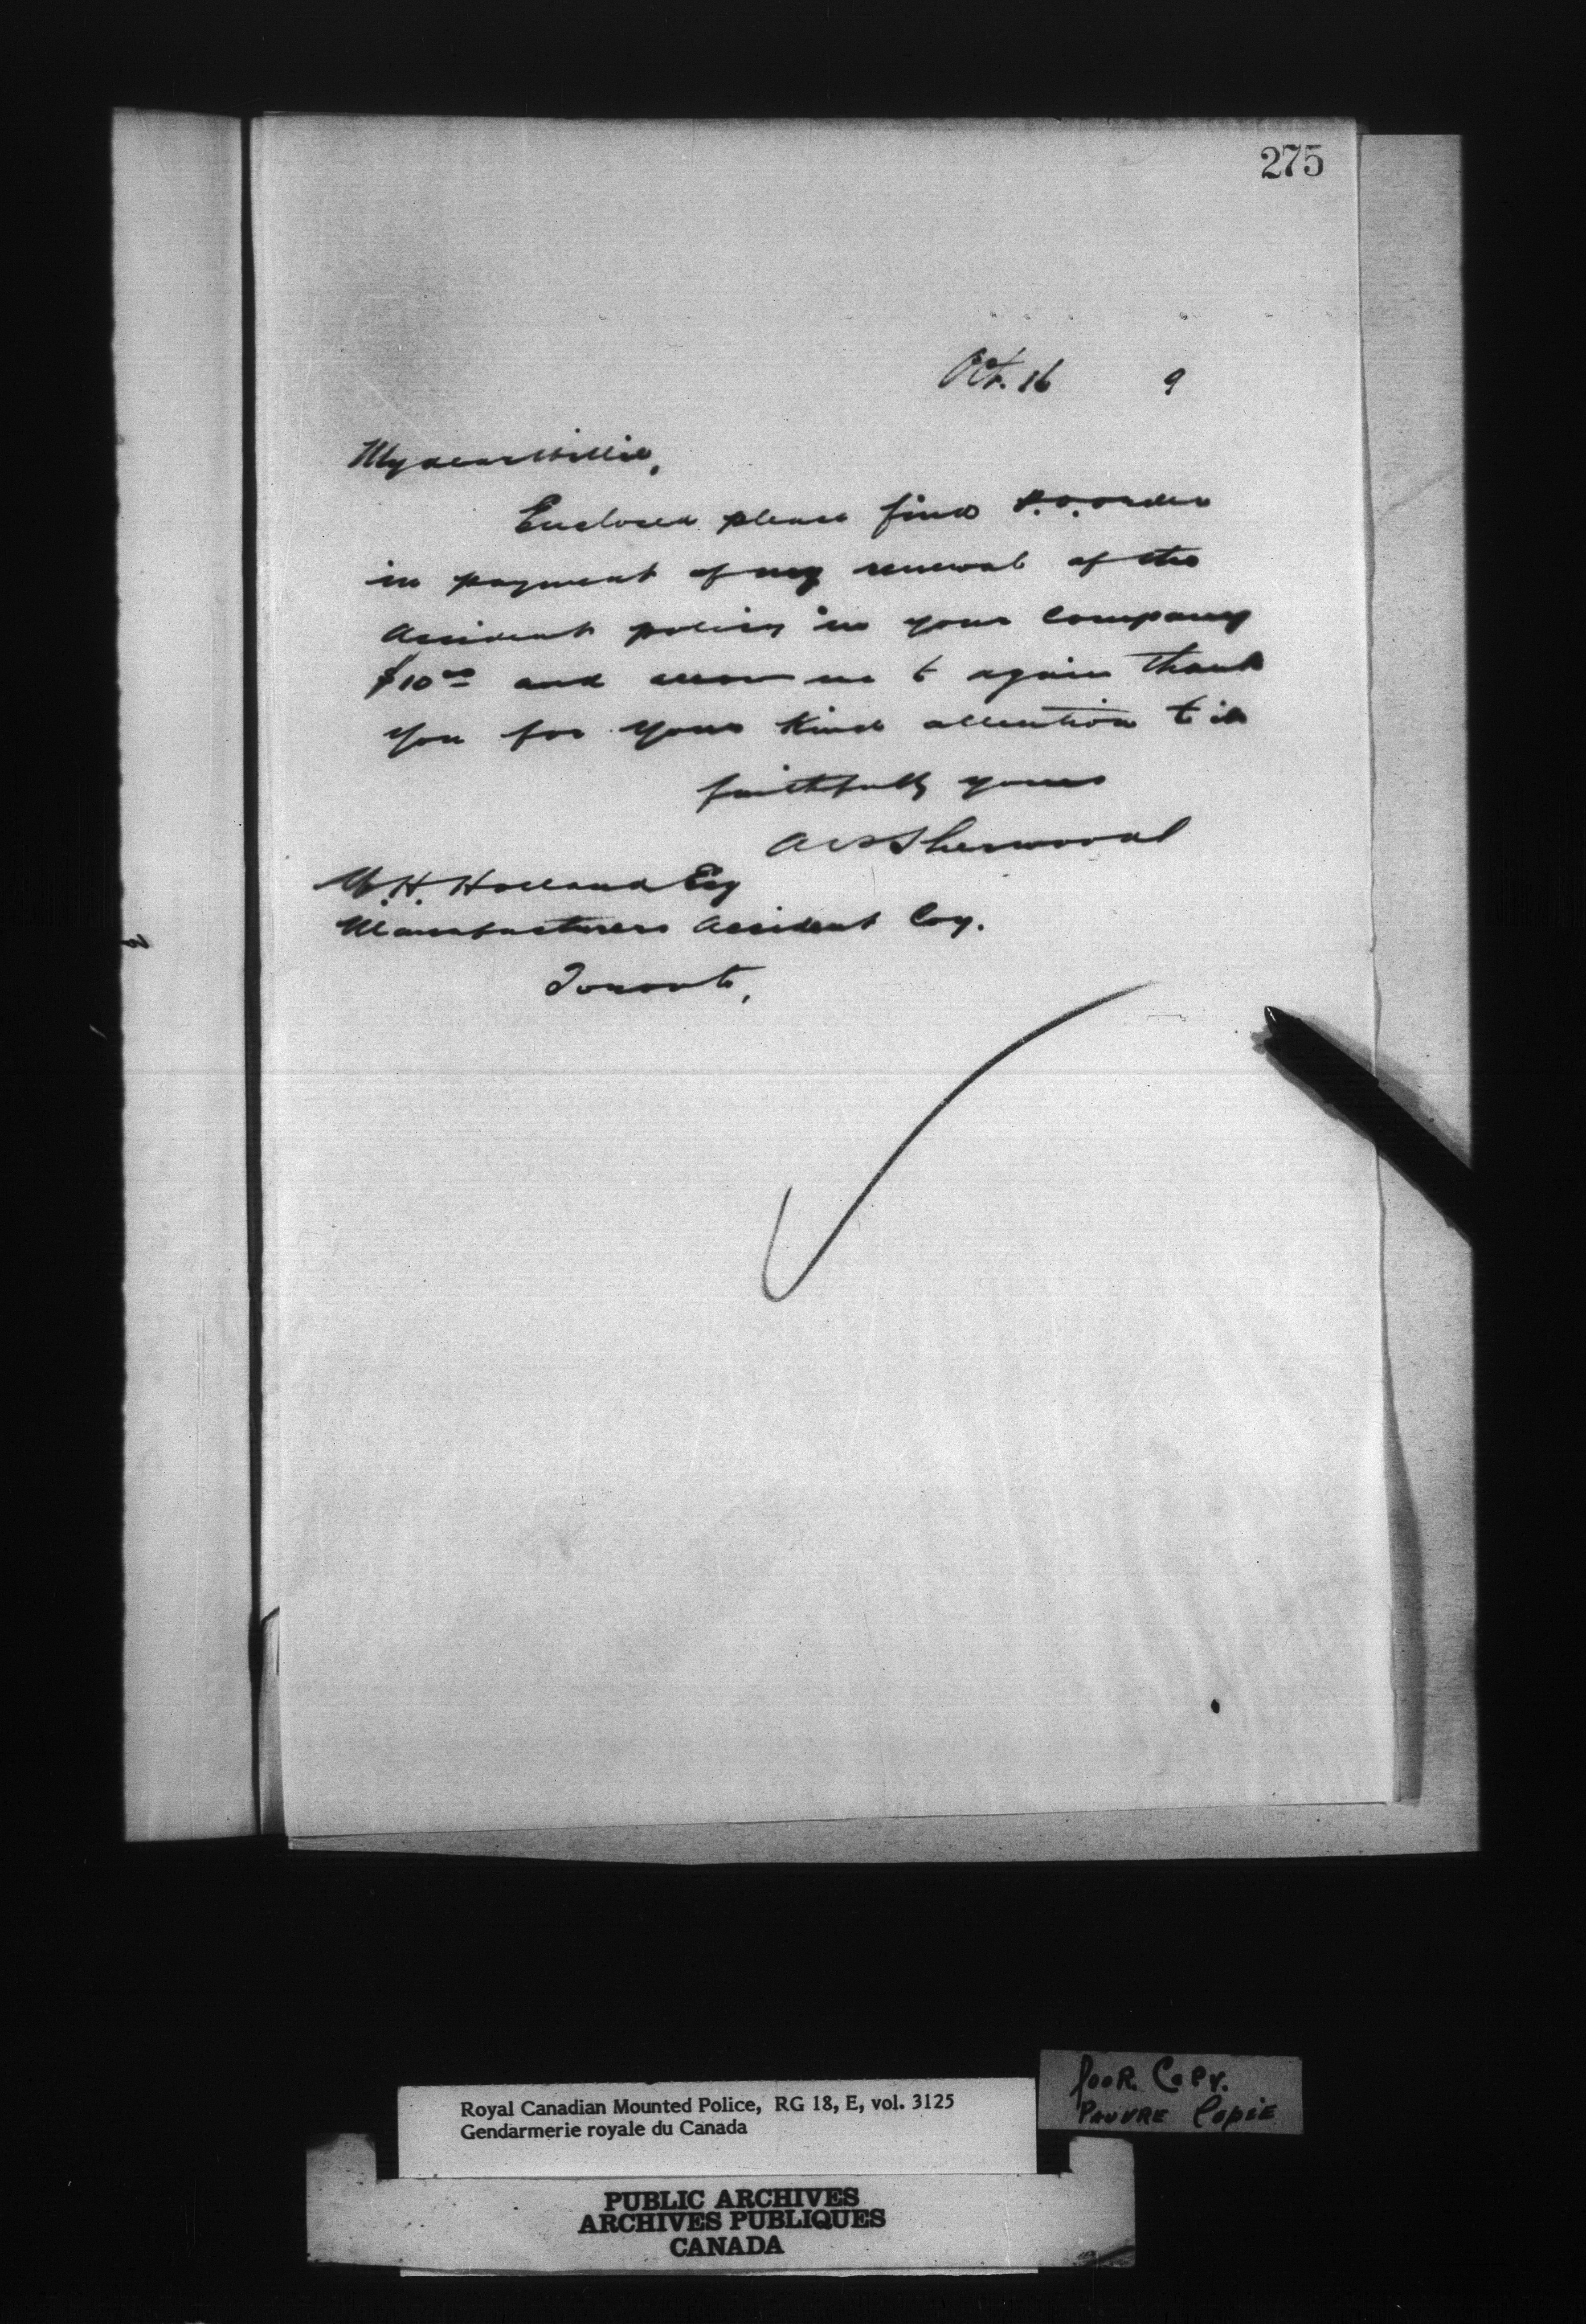 275
Oct. 16 9
My dear Willie,
Enclosed please find P.O. order
in payment of my renewal of the
Accident policy in your Company
$10.00 and allow me to again thank
you for your kind attention to it
faithfully yours
A P Sherwood
W. H. Holland Esq
Manufacturers Accident Coy.
Toronto,
Poor Copy.
Pauvre Copie
Royal Canadian Mounted Police, RG 18, E, vol. 3125
Gendarmerie royale du Canada
PUBLIC ARCHIVES
ARCHIVES PUBLIQUES
CANADA